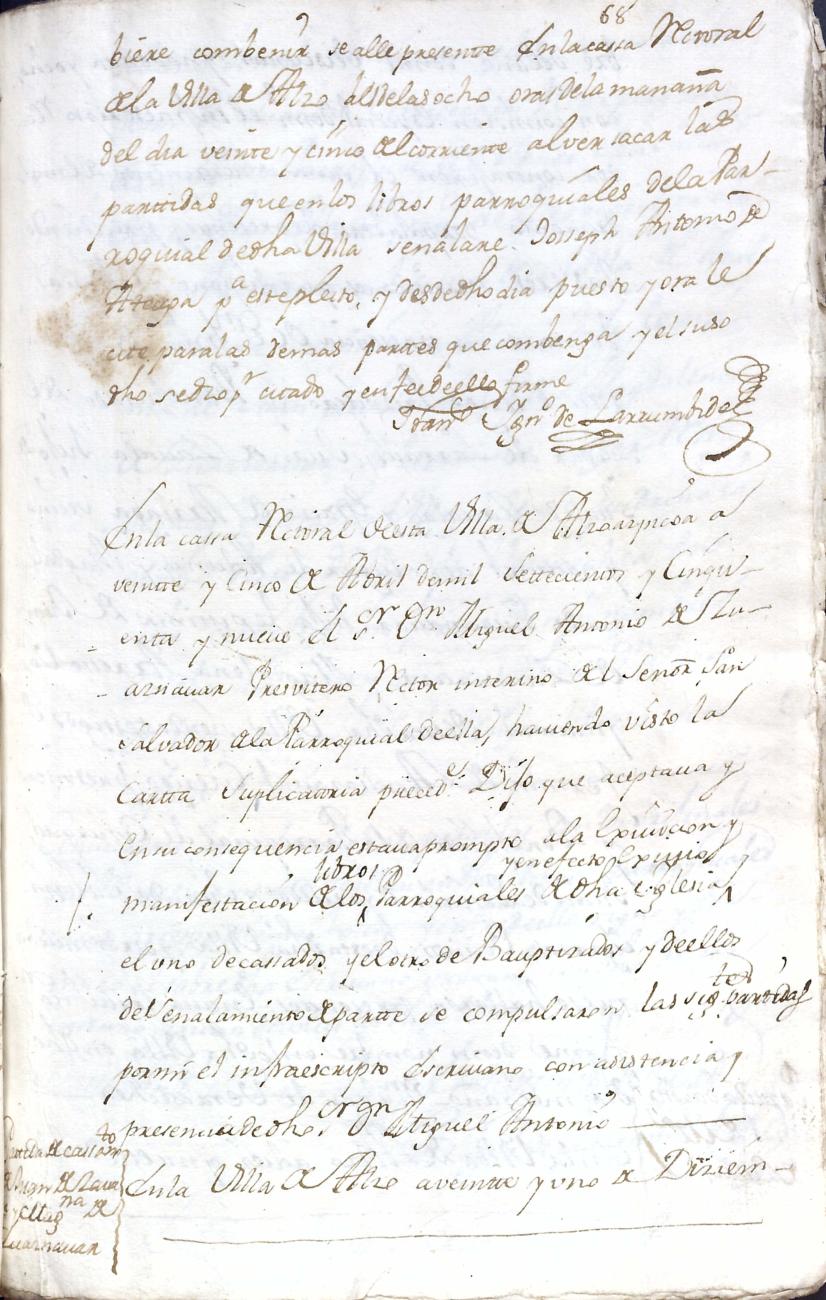 68
biere combenir se alle presente en la cassa Rectoral
de la Villa de Alzo alas delas ocho oras dela mañana
del dia veinte y cinco del corriente al ver sacar las
parttidas que en los libros parroquiales de la Par-
roquial de dha Villa señalare Josseph Antonio de
Ateaga pa este pleito, y desde dho dia puesto y ora le
cite para las demas parttes que combenga y el suso
dho se dio pr citado y en fee de ello firme
Juan Ygno de Larrumbide
En la cassa Rectoral de esta Villa de Alzo
veintte y Cinco de Abril de mil Settecientos y Cinqu-
enta y nueve el Sr Dn Miguel Antonio de
aznavar Presvitero Rector interino del Señor San
Salvador de la Parroquial de ella, haviendo visto la
Cartta Suplicatoria preced.e Dijo que aceptava y
En su consequencia estava prompto a la Exivicion y
manifestacion de los libros Parroquiales de dha Yglesia y en efecto Exivio
el uno de cassados y el otro de Bauptizados y de ellos
de Señalamiento de partte se compulsaron las sigtes partidas
por mi el infraescripto Escrivano con asistencia y
presencia de dho Sr Dn Miguel Antonio
Partida de cassamto
de Juan de
y Magna de
En la Villa de Alzo a veintte y uno de Diziem-